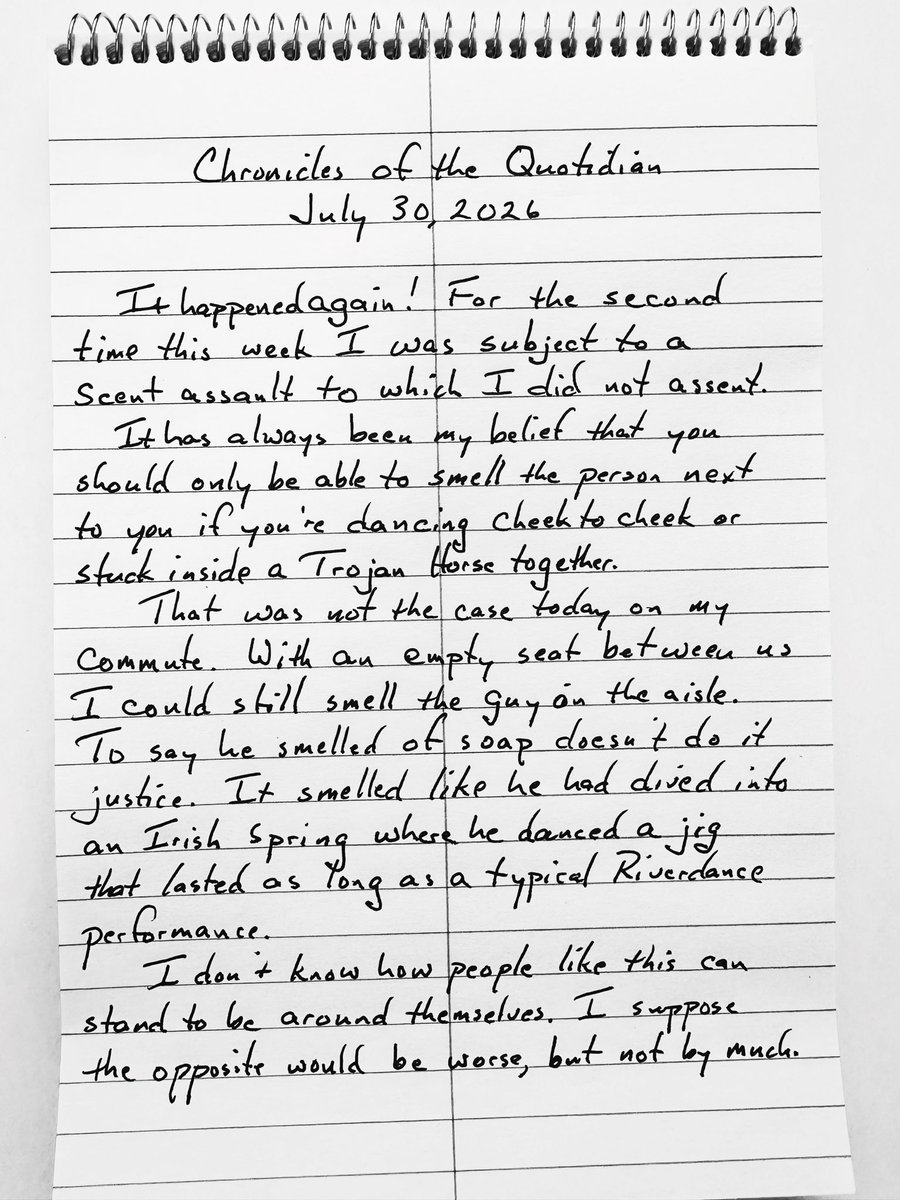 Chronicles of the Quotidian
July 30, 2026
It happened again! For the second
time this week I was subject to a
scent assault to which I did not assent.
It has always been my belief that you
should only be able to smell the person next
to you if you're dancing cheek to cheek or
stuck inside a Trojan Horse together.
That was not the case today on my
commute. With an empty seat between us
I could still smell the guy on the aisle.
To say he smelled of soap doesn't do it
justice. It smelled like he had dived into
an Irish Spring where he danced a jig
that lasted as long as a typical Riverdance
performance.
I don't know how people like this can
stand to be around themselves. I suppose
the opposite would be worse, but not by much.